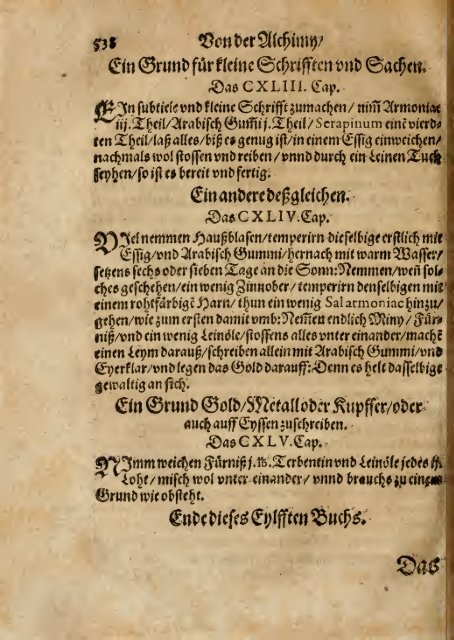 538 Von der Alchimy/
Ein Grund für kleine Schrifften vnd Sachen.
Das CXLIII. Cap.
EIn subtiele vnd kleine Schrifft zumachen/ nim̃ Armoniac
iij. Theil/ Arabisch Gum̃i j. Theil/ Serapinum einẽ vierd-
ten Theil/ laß alles/ biß es genug ist/ in einem Essig einweichen/
nachmals wol stossen vnd reiben/ vnnd durch ein Leinen Tuch
seyhen/ so ist es bereit vnd fertig.
Ein andere deßgleichen.
Das CXLIV. Cap.
VIel nemmen Haußblasen/ temperirn dieselbige erstlich mit
Essig/ vnd Arabisch Gummi/ hernach mit warm Wasser/
setzens sechs oder sieben Tage an die Sonn: Nemmen/ weñ sol-
ches geschehen/ ein wenig Zinnober/ temperirn denselbigen mit
einem rohtfärbigẽ Harn/ thun ein wenig Salarmoniac hinzu/
gehen/ wie zum ersten damit vmb: Nem̃en endlich Miny/ Für-
niß/ vnd ein wenig Leinöle/ stossens alles vnter einander/ machẽ
einen Leym darauß/ schreiben allein mit Arabisch Gummi/ vnd
Eyerklar/ vnd legen das Gold darauff: Denn es helt dasselbige
gewaltig an sich.
Ein Grund Gold/ Metall oder Kupffer/ oder
auch auff Eyssen zuschreiben.
Das CXLV. Cap.
NImm weichen Fürniß j. ℔. Terbentin vnd Leinöle jedes
Loht/ misch wol vnter einander/ vnnd brauchs zu einem
Grund wie obsteht.
Ende dieses Eylfften Buchs.
Das